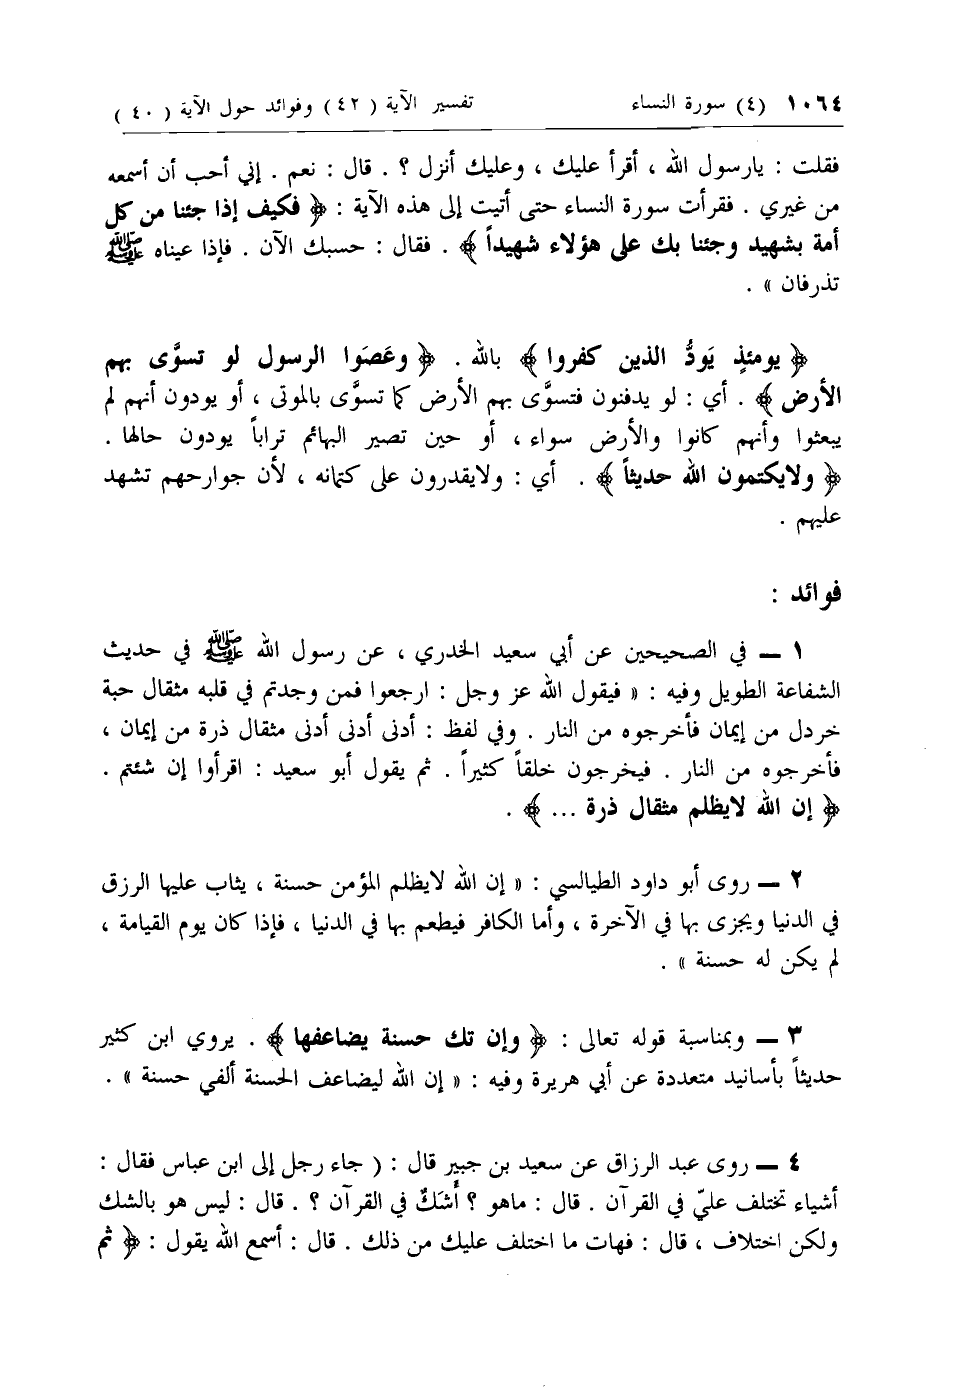 ١٠٦٤ (٤) سورة النساء تفسير الآية ( ٤٢ ) وفوائد حول الآية ( ٤٠ )
فقلت : يارسول الله ، أقرأ عليك ، وعليك أنزل ؟ . قال : نعم . إني أحب أن أسمعه
من غيري . فقرأت سورة النساء حتى أتيت إلى هذه الآية : ﴿ فكيف إذا جئنا من كل
أمة بشهيد وجئنا بك على هؤلاء شهيداً ﴾ . فقال : حسبك الآن . فإذا عيناه ﷺ
تذرفان » .
﴿ يومئذٍ يَودُّ الذين كفروا ﴾ بالله . ﴿ وعَصَوا الرسول لو تسوَّى بهم
الأرض ﴾ . أي : لو يدفنون فتسوَّى بهم الأرض كما تسوَّى بالموتى ، أو يودون أنهم لم
يبعثوا وأنهم كانوا والأرض سواء ، أو حين تصير البهائم تراباً يودون حالها .
﴿ ولايكتمون الله حديثاً ﴾ . أي : ولايقدرون على كتمانه ، لأن جوارحهم تشهد
عليهم .
فوائد :
١ ــ في الصحيحين عن أبي سعيد الخدري ، عن رسول الله ﷺ في حديث
الشفاعة الطويل وفيه : « فيقول الله عز وجل : ارجعوا فمن وجدتم في قلبه مثقال حبة
خردل من إيمان فأخرجوه من النار . وفي لفظ : أدنى أدنى أدنى مثقال ذرة من إيمان ،
فأخرجوه من النار . فيخرجون خلقاً كثيراً . ثم يقول أبو سعيد : اقرأوا إن شئتم .
﴿ إن الله لايظلم مثقال ذرة ... ﴾ .
٢ ــ روى أبو داود الطيالسي : « إن الله لايظلم المؤمن حسنة ، يثاب عليها الرزق
في الدنيا ويجزى بها في الآخرة ، وأما الكافر فيطعم بها في الدنيا ، فإذا كان يوم القيامة ،
لم يكن له حسنة » .
٣ ــ وبمناسبة قوله تعالى : ﴿ وإن تك حسنة يضاعفها ﴾ . يروي ابن كثير
حديثاً بأسانيد متعددة عن أبي هريرة وفيه : « إن الله ليضاعف الحسنة ألفي حسنة » .
٤ ــ روى عبد الرزاق عن سعيد بن جبير قال : ( جاء رجل إلى ابن عباس فقال :
أشياء تختلف عليّ في القرآن . قال : ماهو ؟ أَشَكٌ في القرآن ؟ . قال : ليس هو بالشك
ولكن اختلاف ، قال : فهات ما اختلف عليك من ذلك . قال : أسمع الله يقول : ﴿ ثم